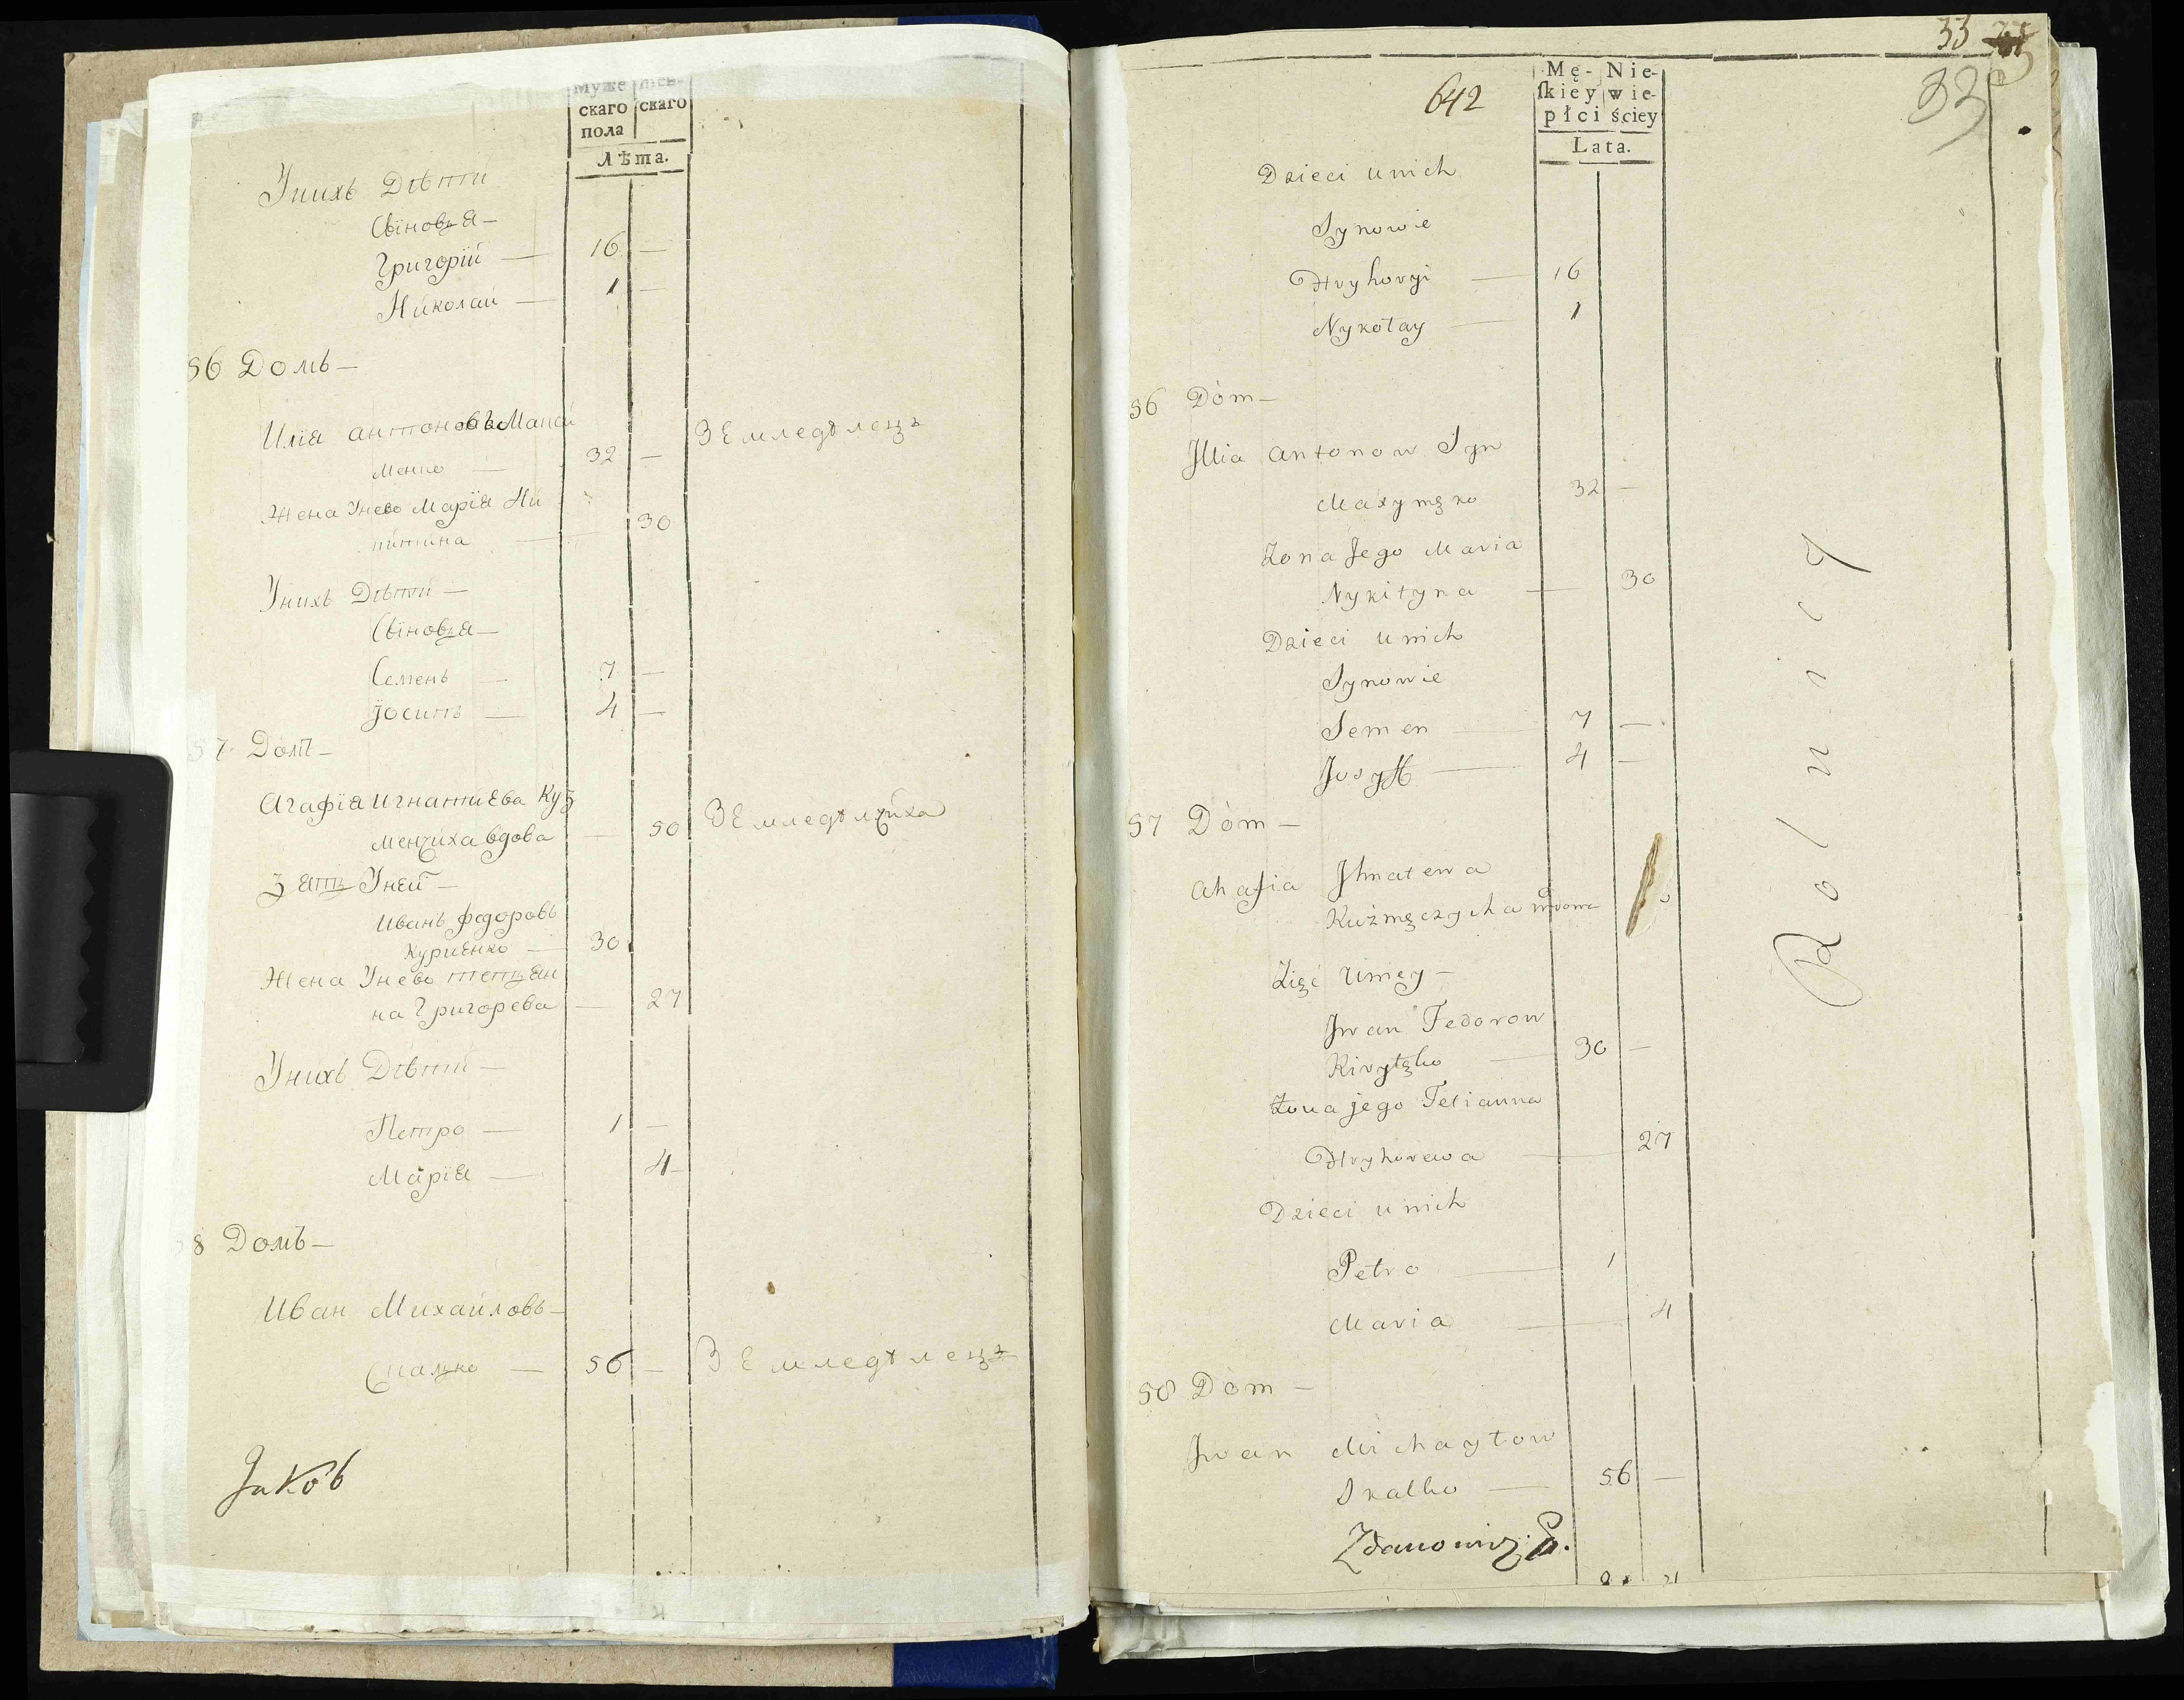 Муже женскаго скаго
пола
Лѣта.
Унихъ Дѣти
Сыновья —
Григорїй — 16 —
Николай — 1 —
56 Домъ —
Илїя антоновъ Макси
менко — 32 — Земледѣлецъ
Жена Унево Марїя Ни
китина — 30
Унихъ Дѣти —
Сыновья —
Семенъ — 7 —
Іосипъ — 4 —
57 Домъ —
Агафїя игнатиева Куз
менчиха вдова — 50 Земледѣлчиха
зять Уней —
Иванъ федоровъ
— 30
Жена Унево тетьян
на Григорева — 27
Унихъ Дѣти —
Петро — 1 —
Марїя — 4 —
8 Домъ —
Иван Михайловъ —
Скалко — 56 — Земледѣлецъ
Яковъ
33
642
33
Mę- Nie-
ſkiey wie-
płci ściey
Lata.
Dzieci unich
Synowie
Hryhoryi — 16
Nykołay — 1
56 Dòm —
Illia antonow Syn
Maxymęko 32 —
Żona Jego Maria
Nykityna — 30
Dzieci unich
Synowie
Semen — 7 —
Josyff — 4 —
57 Dòm —
ahafia Ihnatewa
Kuźmęczycha wdowa
Zięć unięy —
Iwan Fedorow
— 30 —
Żona jego Tetianna
Hryhorewa — 27
Dzieci unich
Petro — 1
Maria — 4
58 Dòm —
Iwan Michayłow
Skalko — 56 —
Rolnicy
Zdanowicz P.